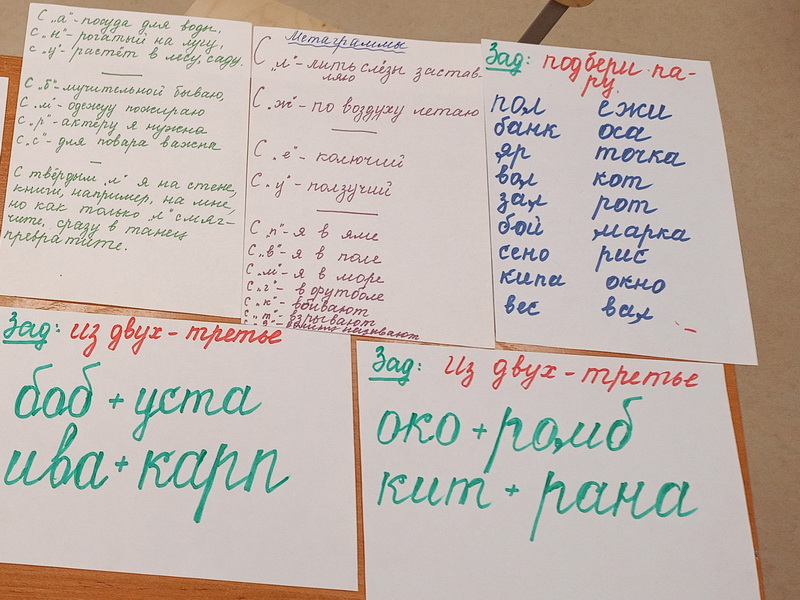 С „а"- посуда для воды,
С „н"- рогатый на лугу,
с „у"- растёт в лесу, саду.
С „б"- мучительной бываю,
С „м"- одежду пожираю
С „р"- актёру я нужна
С „с"- для повара важна
С твёрдым „л" я на стене,
книги, например, на мне,
но как только „л" смяг-
чите, сразу в танец
превратите.
Метаграммы
С „л"- лить слёзы застав-
ляю
С „ж"- по воздуху летаю
С „е"- колючий
С „у"- ползучий
С „п"- я в яме
С „в"- я в поле
С „м"- я в море
С „г"- в футболе
С „к"- вбивают
С „т"- взрывают
называют
Зад: подбери па-
ру.
пол ежи
банк оса
яр точка
вол кот
зал рот
бой марка
сено рис
кипа окно
вес вал
Зад: из двух - третье
боб + уста
ива + карп
Зад: Из двух - третье
око + ромб
кит + рана